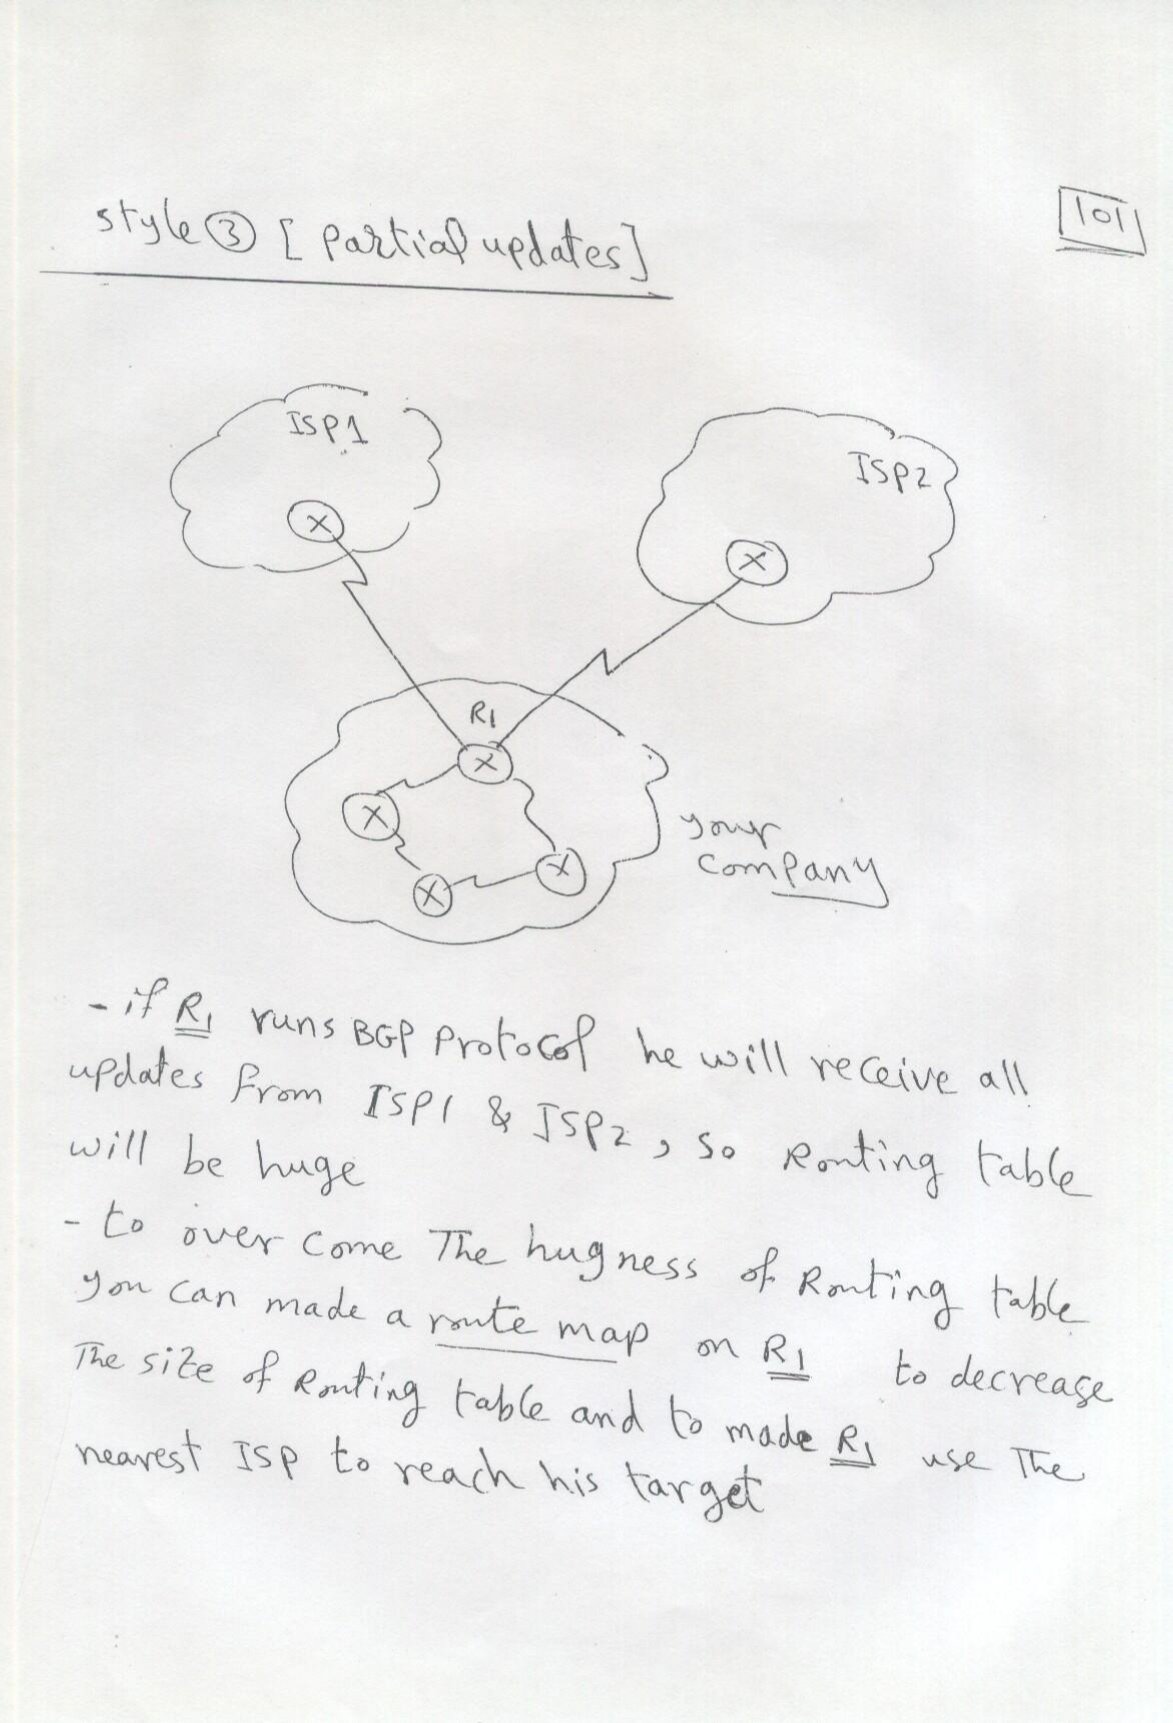 101
style ③ [ partial updates ]
ISP1
ISP2
R1
your
company
- if R1 runs BGP Protocol he will receive all
updates from ISP1 & ISP2, so Routing table
will be huge
- to over come The hugness of Routing table
you can made a route map on R1 to decrease
The size of Routing table and to made R1 use The
nearest ISP to reach his target